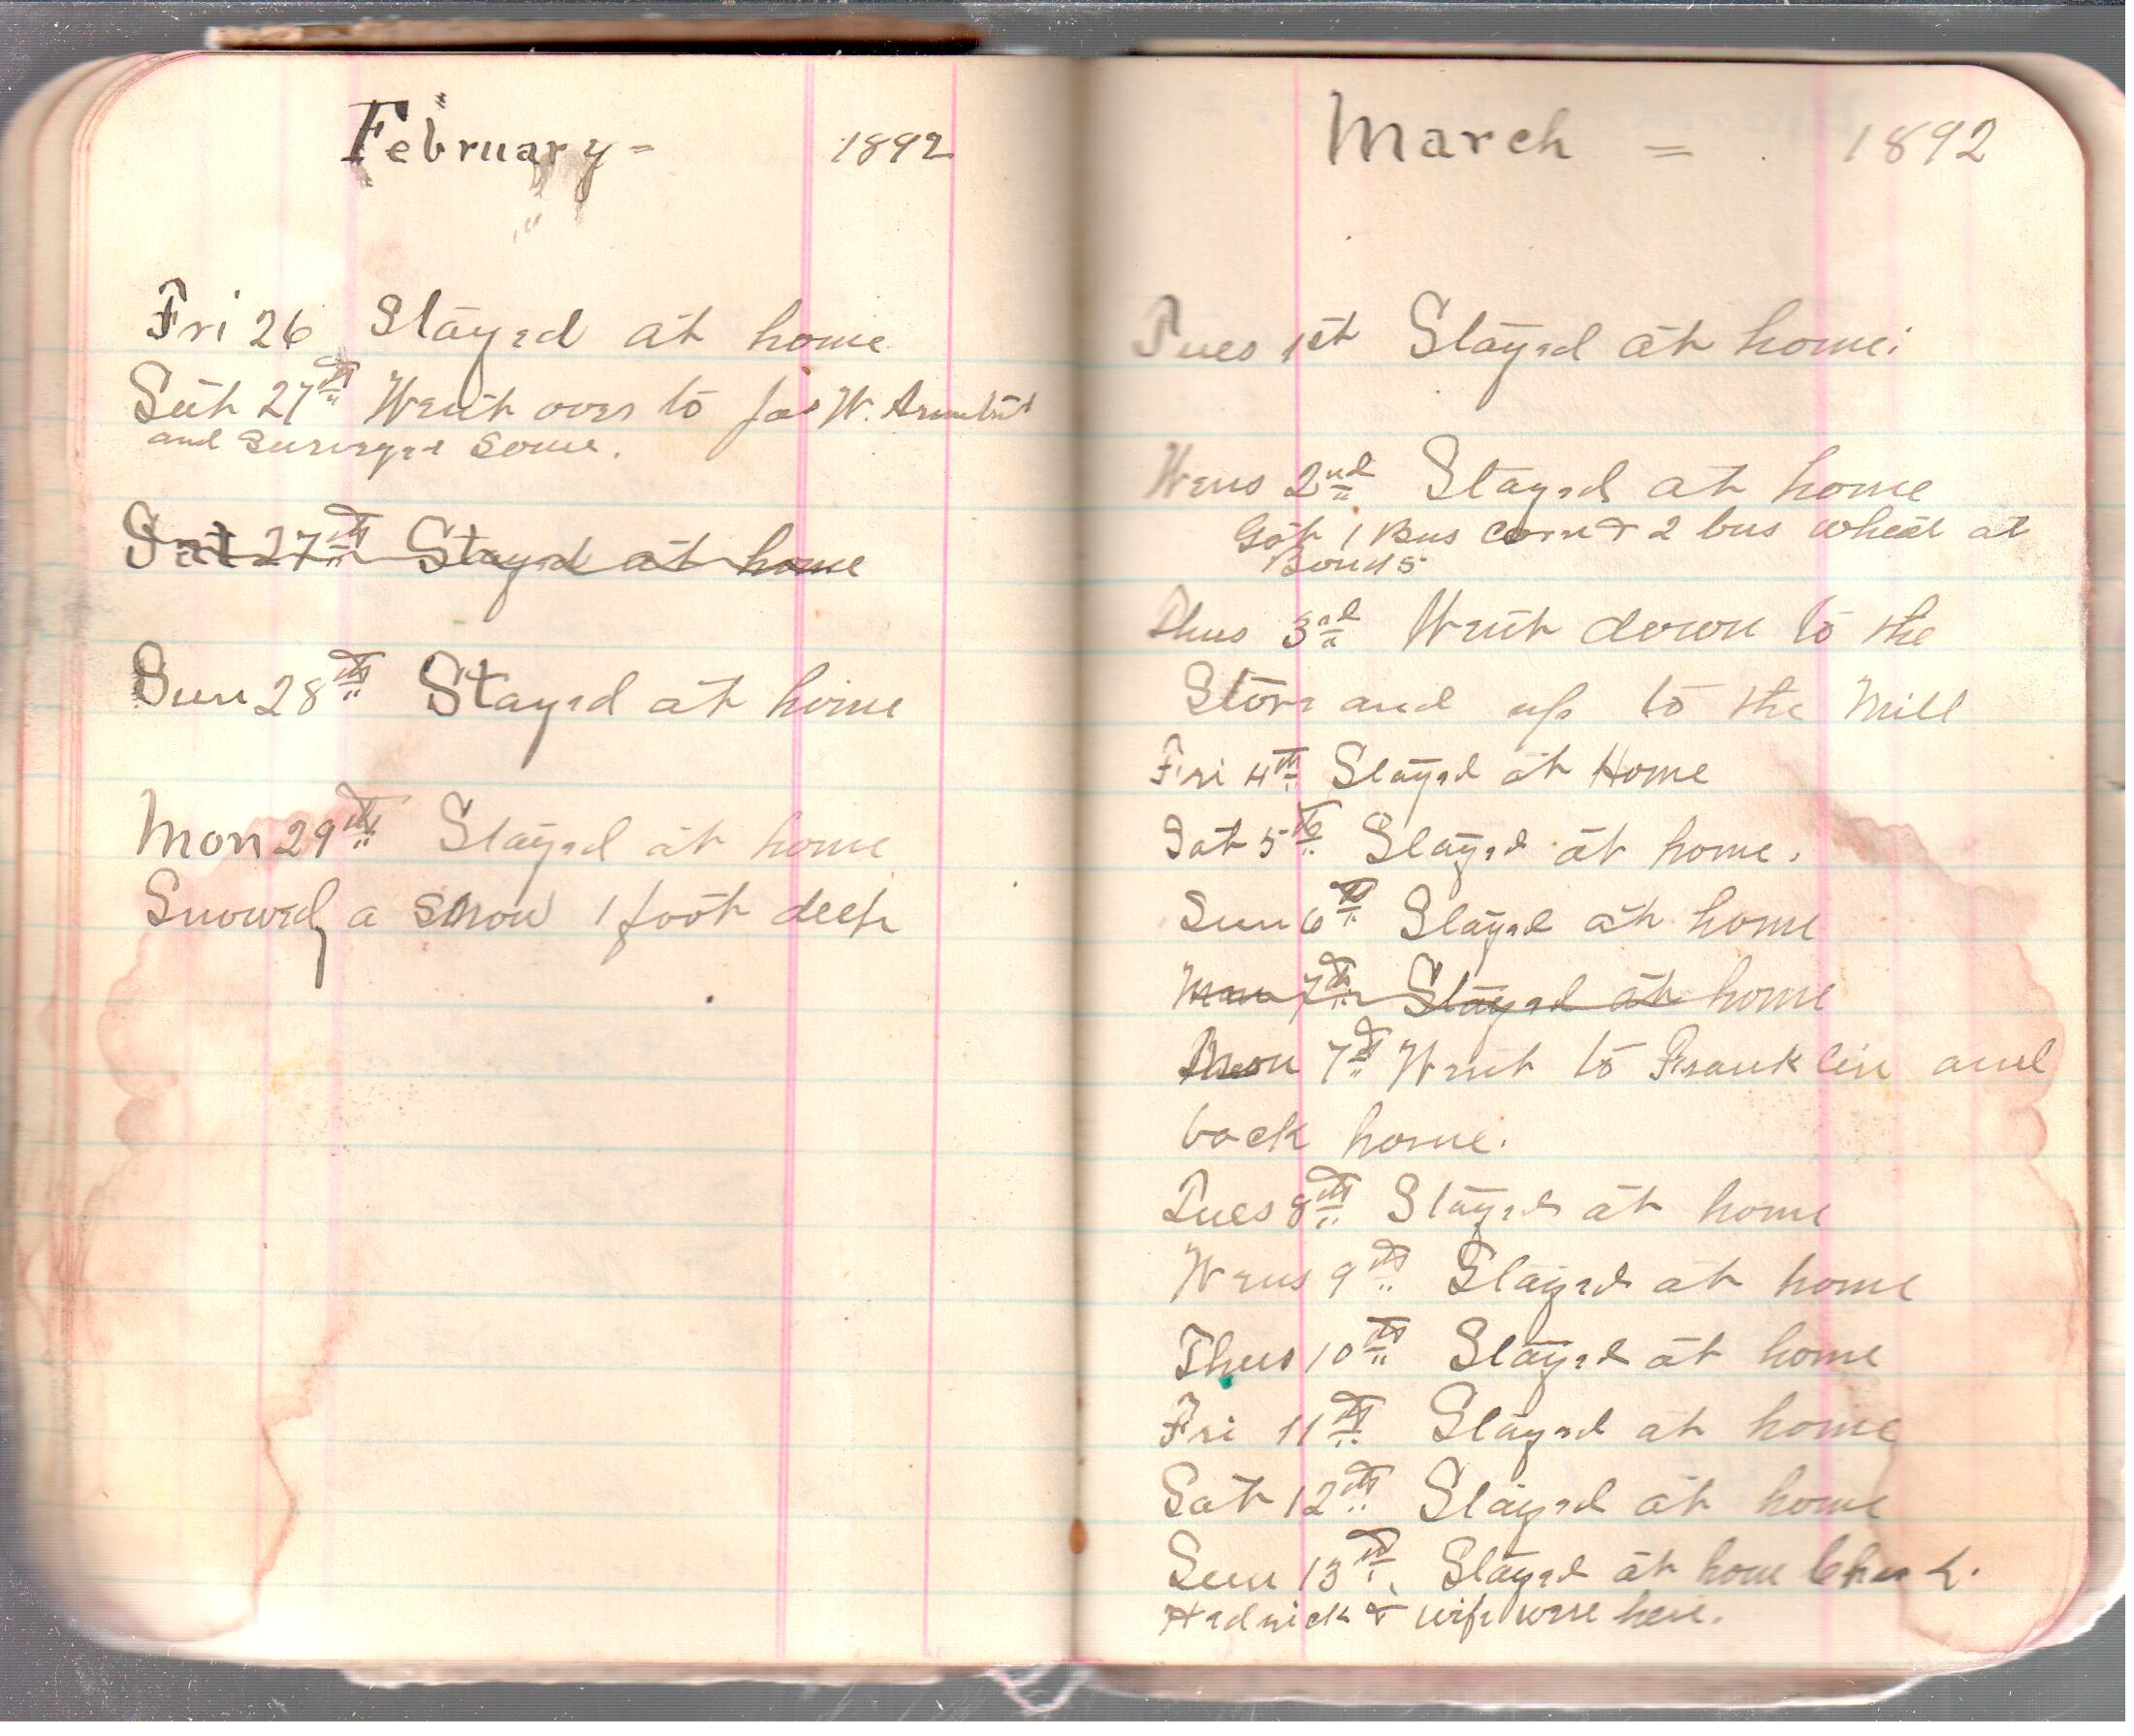 February = 1892
Fri 26 Stayed at home
Sat 27th Went over to Jas W.
and Surveyed Some.
Sat 27th Stayed at home
Sun 28th Stayed at home
Mon 29th Stayed at home
Snowed a snow 1 foot deep
March = 1892
Tues 1st Stayed at home.
Wens 2nd Stayed at home
Got 1 Bus Corn & 2 bus wheat at
Bonds
Thus 3rd Went down to the
Store and up to the Mill
Fri 4th Stayed at Home
Sat 5th Stayed at home.
Sun 6th Stayed at home
Mon 7th Stayed at home
Mon 7th Went to Franklin and
back home.
Tues 8th Stayed at home
Wens 9th Stayed at home
Thus 10th Stayed at home
Fri 11th Stayed at home
Sat 12th Stayed at home
Sun 13th Stayed at home Chas L.
Hedrick & wife were here.